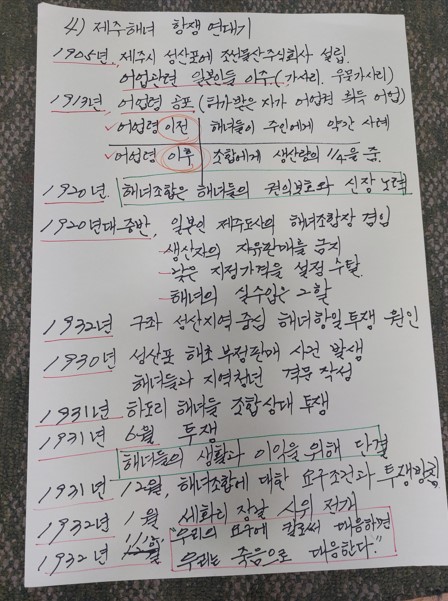 4) 제주해녀 항쟁 연대기
1905년, 제주시 성산포에 조선물산주식회사 설립.
어업관련 일본인들 이주.(가서리. 우뭇가사리)
1913년, 어업령 공포 (허가받은 자가 어업권 취득 어업)
✓어업령 이전 해녀들이 주인에게 약간 사례
✓어업령 이후 조합에게 생산량의 1/4을 줌.
1920년. 해녀조합은 해녀들의 권익보호와 신장 노력
1920년대 중반, 일본인 제주도사의 해녀조합장 겸임
-생산자의 자유판매를 금지
-낮은 지정가격을 설정 수탈.
-해녀의 실수입은 2할
1932년 구좌 성산지역 중심 해녀항일투쟁 원인
1930년 성산포 해초 부정판매 사건 발생
해녀들과 지역청년 격문 작성
1931년 하도리 해녀들 조합상대 투쟁
1931년 6월 투쟁
해녀들의 생활과 이익을 위해 단결
1931년 12월, 해녀조합에 대한 요구조건과 투쟁방침
1932년 1월 세화리 장날 시위 전개
1932년 "우리의 요구에 칼로써 대응하면
우리는 죽음으로 대응한다."